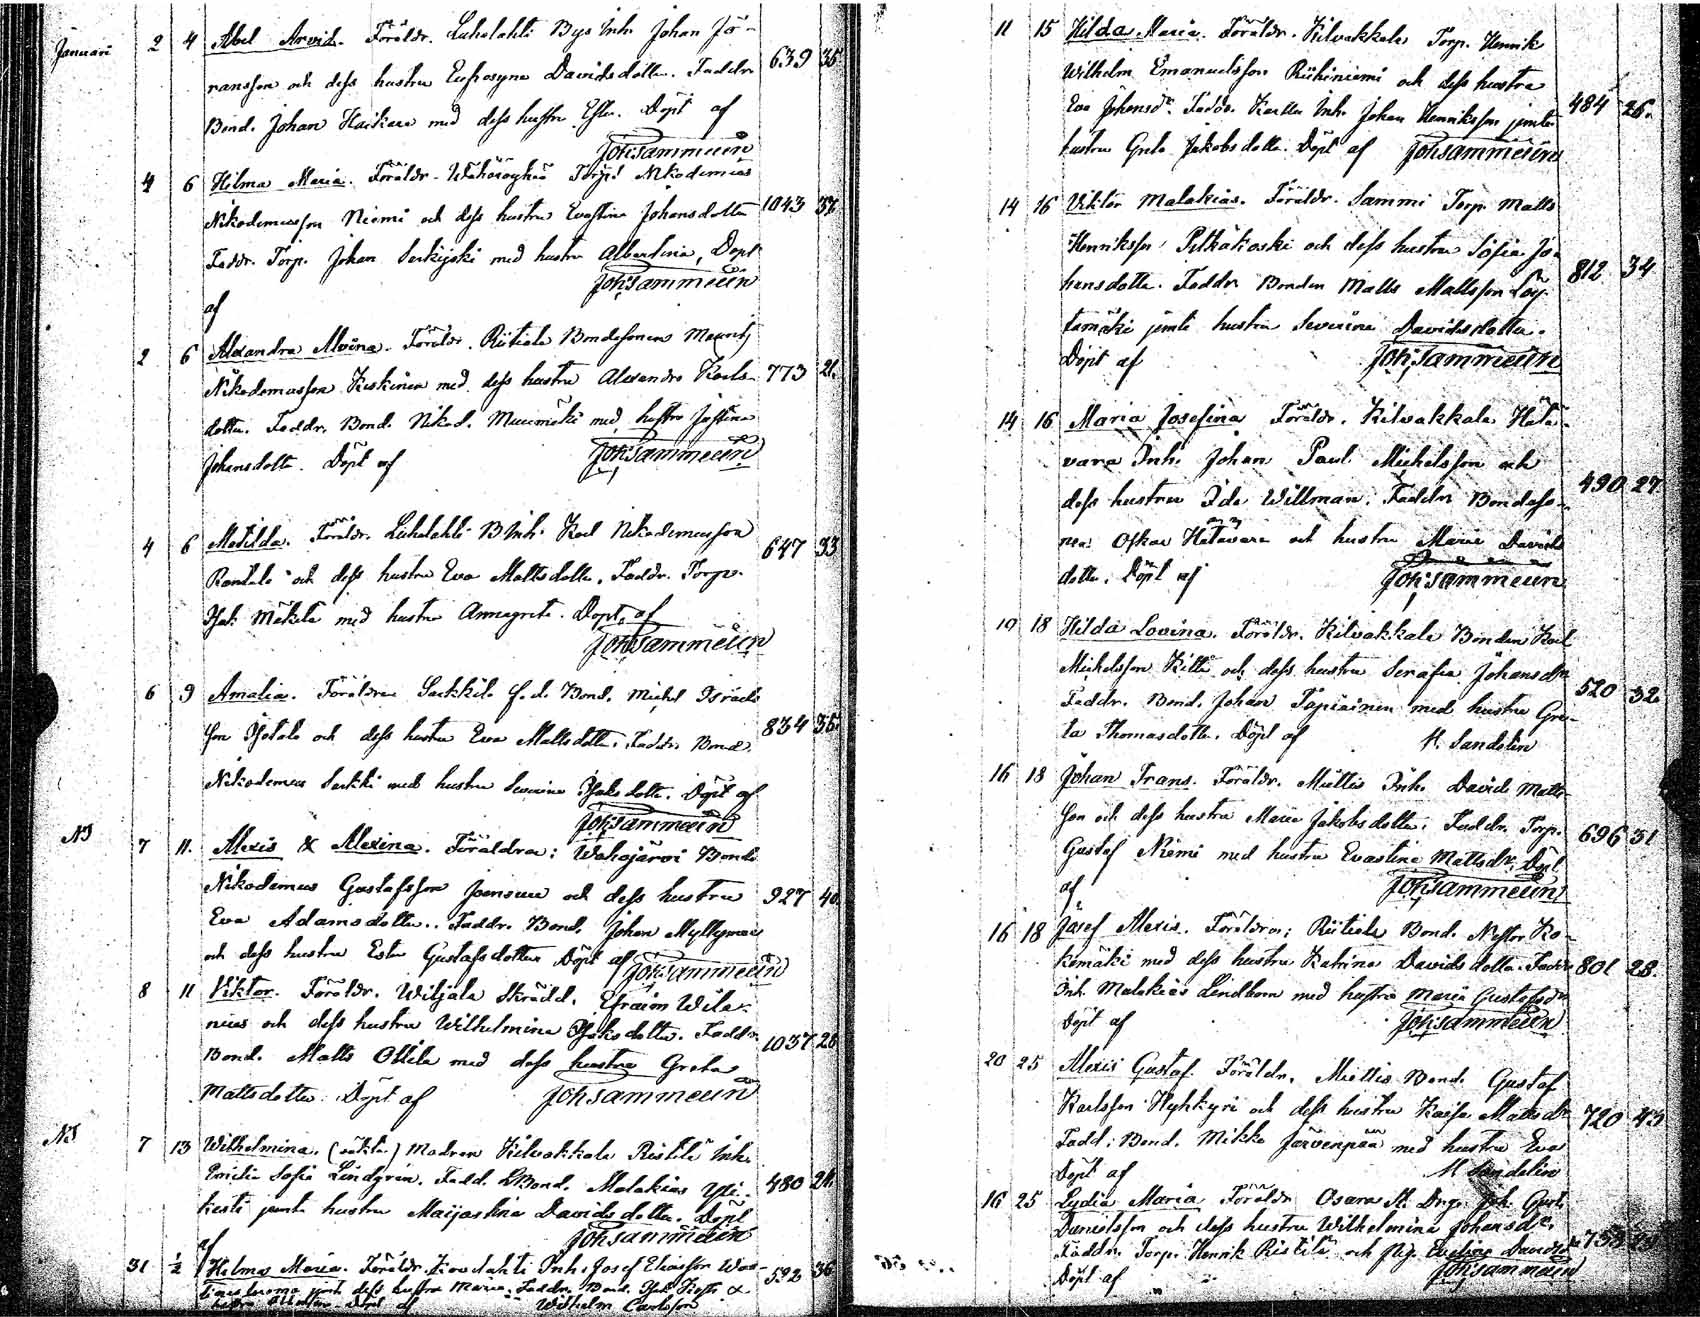 Januari 2 4 Abel Arvid. Föräldr. Luhalahti Bys Inh. Johan Jö-
ransson och dess hustru Eufrosyne Davidsdotter. Faddr. 639 35.
Bond. Johan Haikara med dess hustru Ester. Döpt af
Joh: Sammelin
4 6 Hilma Maria. Föräldr. Torp. Nikodemus
Nikodemusson Niemi och dess hustru Evastina Johansdotter 1043 37.
Faddr. Torp. Johan med hustru Albertina, Döpt
af
Joh: Sammelin
2 6 Alexandra Alvina. Föräldr. Riitiala Bondesonen Maurits
Nikodemusson Keskinen med dess hustru Alexandra Karls- 773 21.
dotter. Faddr. Bond. Nikod. med hustru Justina
Johansdotter. Döpt af
Joh: Sammelin
4 6 Matilda. Föräldr. Luhalahti B Inh. Karl Nikodemusson
Rantala och dess hustru Eva Mattsdotter. Faddr. Torp. 647 33
Isak Mäkelä med hustru Annagreta. Döpt af
Joh: Sammelin
6 9 Amalia. Föräldrar Sarkkila f.d. Bond. Michel Israels
son Isotalo och dess hustru Eva Mattsdotter. Faddr. Bond. 834 35.
Nikodemus Sarkki med hustru Severina Isaksdotter. Döpt af
Joh: Sammelin
7 11. Alexis & Alexina. Föräldrar: Wahojärvi Bond.
Nikodemus Gustafsson Joensuu och dess hustru 927 40.
Eva Adamsdotter. Faddr. Bond. Johan Myllymaa
och dess hustru Ester Gustafsdotter Döpt af Joh: Sammelin
8 11 Viktor. Föräldr. Wiljala Skrädd. Efraim Wile-
nius och dess hustru Wilhelmina Isaksdotter. Faddr. 1037 28
Bond. Matts Ollila med dess hustru Greta
Mattsdotter. Döpt af Joh Sammelin
7 13 Wilhelmina. (oäkta) Modren Kilvakkala Ristilä Inh.
Emilia Sofia Lindgrén. Fadd. Bond. Malakias Yli- 480 24.
kesti jemte hustru Maijastina Davidsdotter. Döpt
af Joh Sammelin
31 1/2 Hilma Maria. Föräldr. Kovelahti Inh. Josef Eliasson 592 36
jemte dess hustru Maria. Faddr. Bond. Isak &
hustru Döpt af Wilhelm Carlsson
11 15 Hilda Maria. Föräldr. Kilvakkala Torp. Henrik
Wilhelm Emanuelsson Riihiniemi och dess hustru
Eva Johansdr. Faddr. Inh. Johan Henriksson jemte 484 26.
hustru Greta Jakobsdotter. Döpt af Joh Sammelin
14 16 Viktor Malakias. Föräldr. Sammi Torp. Matts
Henriksson Pitkäkoski och dess hustru Sofia Jo-
hansdotter. Faddr. Bonden Matts Mattsson Löy- 812 34
tämäki jemte hustru Severina Davidsdotter.
Döpt af Joh: Sammelin
14 16 Maria Josefina Föräldr. Kilvakkala Hata-
vara Inh. Johan Paul Michelsson och
dess hustru Ida Willman. Faddr. Bondeso- 490 27
nen Oskar Hatavara och hustru Maria Davids
dotter. Döpt af Joh: Sammelin
19 18 Hilda Lovina. Föräldr. Kilvakkala Bonden Karl
Michelsson Kittu och dess hustru Serafia Johansdr
Faddr. Bond. Johan Tapiainen med hustru Gre- 520 32
ta Thomasdotter. Döpt af H. Sandelin
16 18 Johan Frans. Föräldr. Miettis Inh. David Matts-
son och dess hustru Maria Jakobsdotter. Faddr. Torp. 696 31
Gustaf Niemi med hustru Evastina Mattsdr. Döpt
af Joh: Sammelin
16 18 Josef Alexis. Föräldrar: Riitiala Bond. Nestor Ko-
kemäki med dess hustru Katrina Davidsdotter. Faddr. 801 28.
Inh. Malakias Lindbom med hustru Maria Gustafsdr
Döpt af Joh: Sammelin
20 25 Alexis Gustaf. Föräldr. Miettis Bond. Gustaf
Karlsson Hyhkyri och dess hustru Kaisa Mattsdr 720 43
Fadd: Bond. Mikko Järvenpää med hustru Eva
Döpt af H Sandelin
16 25 Lydia Maria Föräldr. Osara Drg. Joh. Gust.
Danielsson och dess hustru Wilhelmina Johansdr.
Faddr. Torp. Henrik Ristilä och Pig. Evelina Davidsdr 753
Döpt af Joh: Sammelin